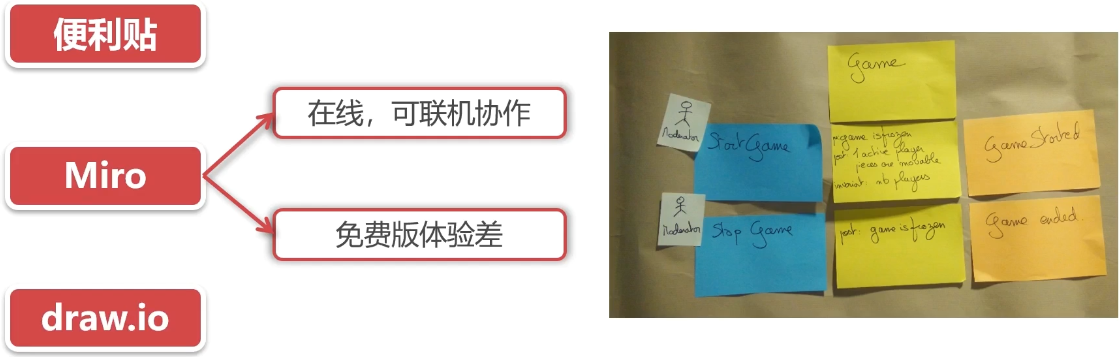 便利贴
在线，可联机协作
Miro
免费版体验差
draw.io
Game
Moderator
Start Game
pre game is frozen
post 1 active player
pieces are movable
invariant nb players
Game Started
Moderator
Stop Game
post: game is frozen
Game ended.